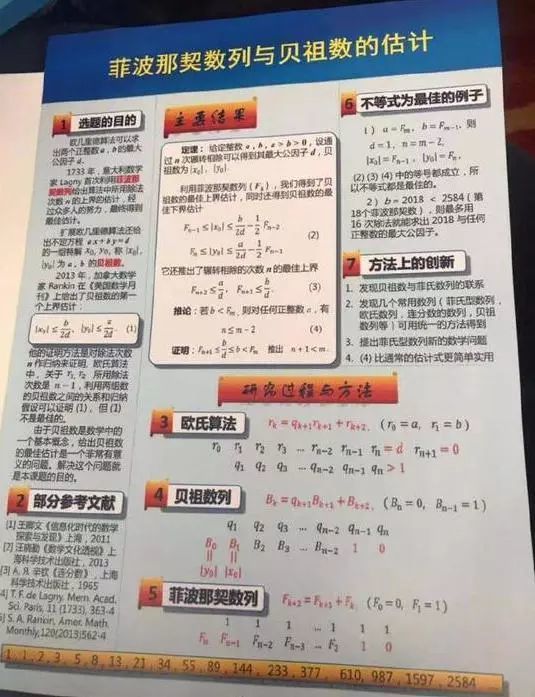 菲波那契数列与贝祖数的估计
1 选题的目的
欧几里德算法可以求
出两个正整数 a, b 的最大
公因子 d.
1733 年，意大利数学
家 Lagny 首次利用菲波那
契数列给出算法中所用除法
次数 n 的上界的估计，经
过众多人的努力，最终得到
最佳估计。
扩展欧几里德算法还给
出不定方程 ax+by=d
的一组特解 x₀, y₀, 称 |x₀|,
|y₀| 为 a, b 的贝祖数。
2013 年，加拿大数学
家 Rankin 在《美国数学月
刊》上给出了贝祖数的第一
个上界估计：
|x₀| ≤ b/2d, |y₀| ≤ a/2d. (1)
他的证明方法是对除法次数
n 作归纳来证明. 欧氏算法
中，关于 r₁, r₂ 所用除法
次数是 n − 1，利用两组数
的贝祖数之间的关系和归纳
假设可以证明 (1)，但 (1)
不是最佳的。
由于贝祖数是数学中的
一个基本概念，给出贝祖数
的最佳估计是一个非常有意
义的问题。解决这个问题就
是本课题的目的。
2 部分参考文献
[1] 王卿文《信息化时代的数学
探索与发现》上海，2011
[2] 汪晓勤《数学文化透视》上
海科学技术出版社，2013
[3] А. Я. 辛钦《连分数》，上海
科学技术出版社，1965
[4] T. F. de Lagny. Mem. Acad.
Sci. Paris, 11 (1733), 363-4
[5] S. A. Rankin, Amer. Math.
Monthly, 120(2013)562-4
主要结果
定理：给定整数 a, b, a > b > 0，设通
过 n 次辗转相除可以得到其最大公因子 d，贝
祖数为 |x₀|, |y₀|.
利用菲波那契数列 {Fₖ}，我们得到了贝
祖数的最佳上界估计，同时还得到贝祖数的最
佳下界估计
Fₙ₋₁ ≤ |x₀| ≤ b/2d − 1/2 Fₙ₋₂
(2)
Fₙ ≤ |y₀| ≤ a/2d − 1/2 Fₙ₋₁
它还推出了辗转相除的次数 n 的最佳上界
Fₙ₊₂ ≤ a/d, Fₙ₊₁ ≤ b/d. (3)
推论：若 b < Fₘ，则对任何正整数 a，有
n ≤ m − 2 (4)
证明：Fₙ₊₁ ≤ b/d ≤ b < Fₘ 推出 n + 1 < m.
6 不等式为最佳的例子
1) a = Fₘ, b = Fₘ₋₁, 则
d = 1, n = m − 2,
|x₀| = Fₙ₋₁, |y₀| = Fₙ.
(2) (3) (4) 中的等号都成立，所
以不等式都是最佳的。
2) b = 2018 < 2584 (第
18个菲波那契数)，则最多用
16 次除法就能求出 2018 与任何
正整数的最大公因子。
7 方法上的创新
1. 发现贝祖数与菲氏数列的联系
2. 发现几个常用数列（菲氏型数列，
欧氏数列，连分数的数列，贝祖
数列等）可用统一的方法得到
3. 提出菲氏型数列新的数学问题
4. (4) 比通常的估计式更简单实用
研究过程与方法
3 欧氏算法 rₖ = qₖ₊₁rₖ₊₁ + rₖ₊₂, (r₀ = a, r₁ = b)
r₀ r₁ r₂ r₃ … rₙ₋₂ rₙ₋₁ rₙ = d rₙ₊₁ = 0
q₁ q₂ q₃ … qₙ₋₂ qₙ₋₁ qₙ > 1
4 贝祖数列 Bₖ = qₖ₊₁Bₖ₊₁ + Bₖ₊₂, (Bₙ = 0, Bₙ₋₁ = 1)
q₁ q₂ q₃ … qₙ₋₂ qₙ₋₁ qₙ
B₀ B₁ B₂ B₃ … Bₙ₋₂ 1 0
|| ||
|y₀| |x₀|
5 菲波那契数列 Fₖ₊₂ = Fₖ₊₁ + Fₖ (F₀ = 0, F₁ = 1)
1 1 1 … 1 1 1
Fₙ Fₙ₋₁ Fₙ₋₂ Fₙ₋₃ … F₂ 1 0
1, 1, 2, 3, 5, 8, 13, 21, 34, 55, 89, 144, 233, 377, 610, 987, 1597, 2584